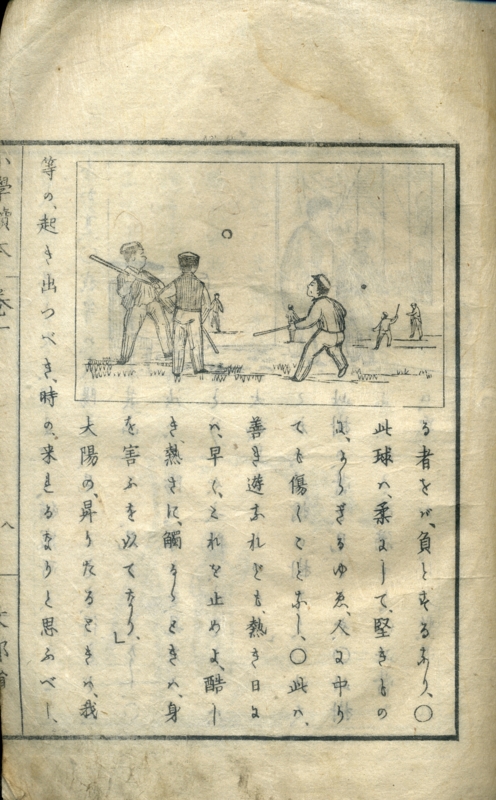 る者をバ、負とするなり、〇
此球ハ、柔にして、堅きもの
に、あらざるゆゑ、人に中り
ても傷くことなし、〇此ハ、
善き遊なれども、熱き日に
ハ、早く、これを止めよ、酷し
き熱さに、觸るゝときハ、身
を害ふを以てなり、」
太陽の、昇りたるときハ、我
等の、起き出つべき、時の、来れるなりと思ふべし、
小學讀本 卷一
八
文部省